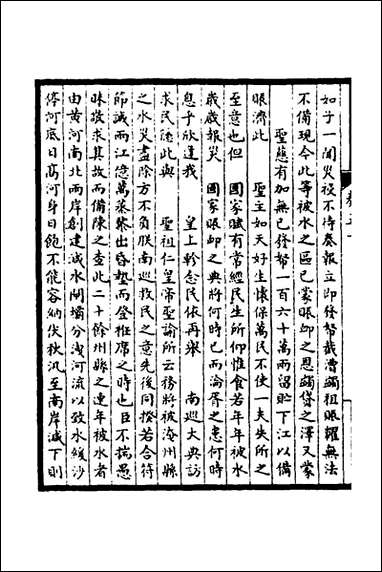 如于一聞災祲不待奏報立即發帑截漕蠲租賑糶無法
不備現今此等被水之區已蒙賑卹之恩蠲貸之澤又蒙
聖慈有加無已發帑一百六十萬兩留貯下江以備
賑濟此　聖主如天好生懷保萬民不使一夫失所之
至意也但　國家賦有常經民生所仰惟食若年年被水
歲歲報災　國家賑卹之典將何時已而淪胥之患何時
息乎欣逢我　皇上軫念民依再舉　南巡大典訪
求民隱此與　聖祖仁皇帝聖諭所云務將被淹州縣
之水災盡除方不負朕南巡救民之意先後同揆若合符
節誠兩江億萬蒸黎出昏墊而登衽席之時也臣不揣愚
昧敬求其故而備陳之查此二十餘州縣之連年被水者
由黃河南北兩岸創建減水閘壩分洩河流以致水緩沙
停河底日高河身日飽不能容納伏秋汛至南岸減下則